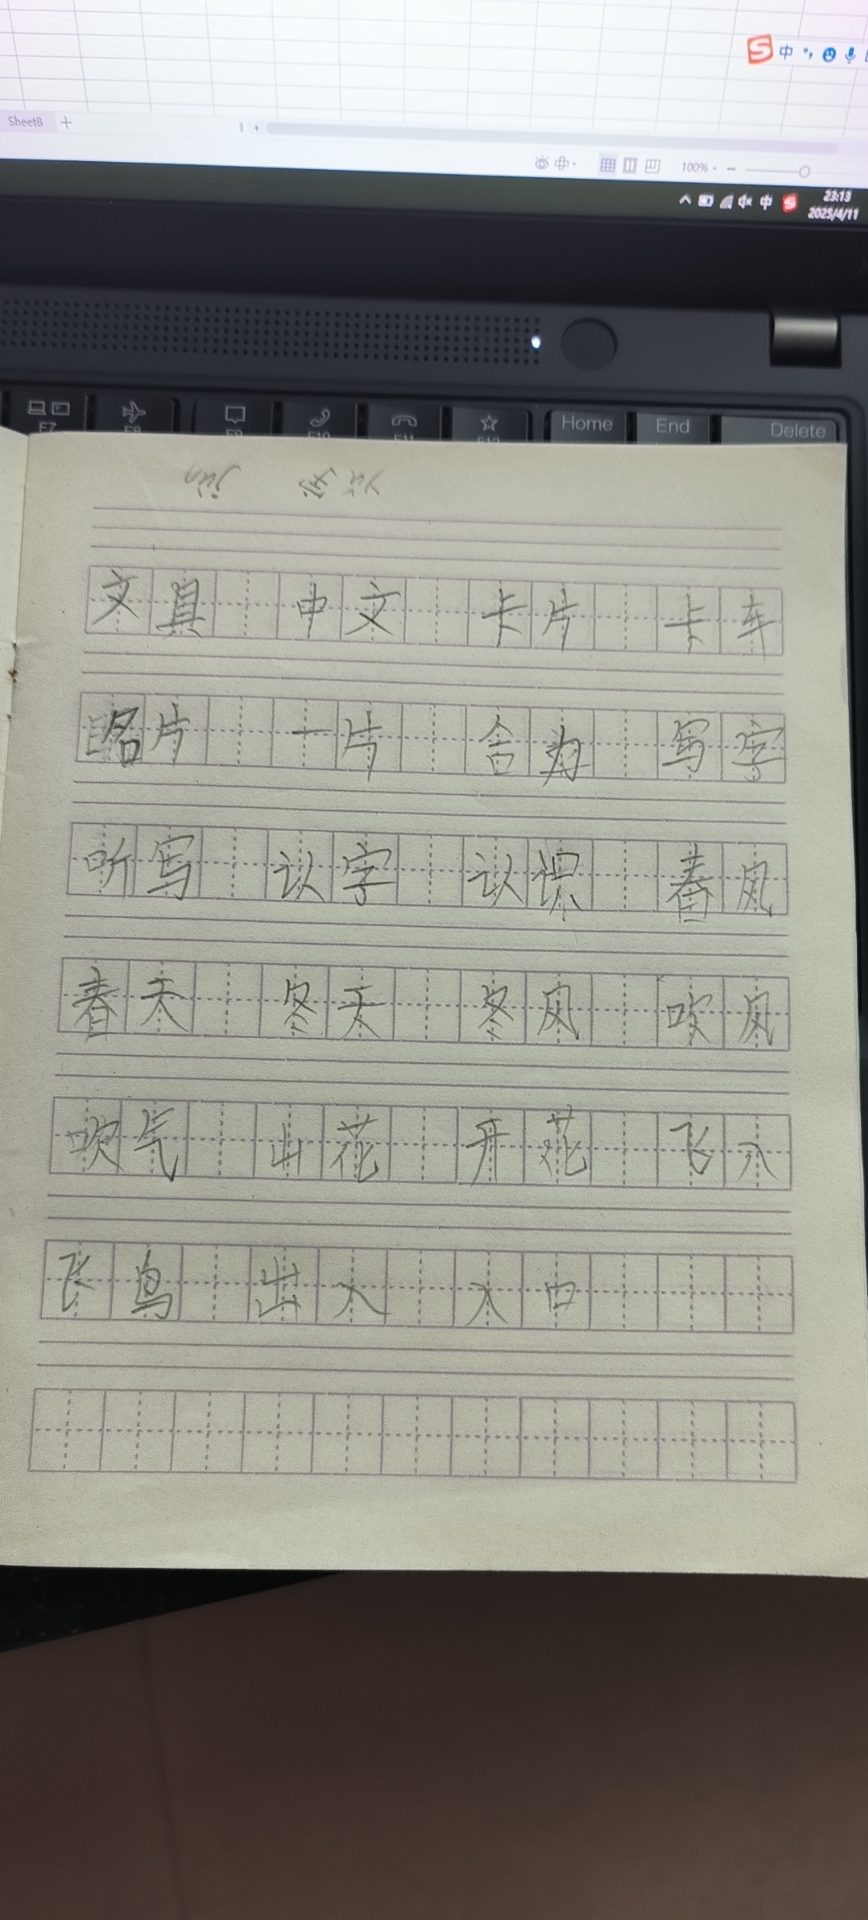 中
Sheet8 +
100%
中
23:13
2025/4/11
F7 F8 F9 F10 F11 F12 Home End Delete
文具 中文 卡片 卡车
名片 一片 合为 写字
听写 认字 认识 春风
春天 冬天 冬风 吹风
吹气 出花 开花 飞入
飞鸟 出入 入口